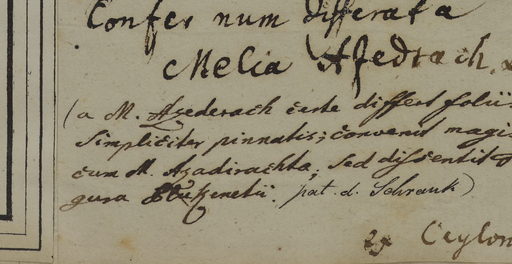 Confer num differat a
Melia Azedrach.
(a M. Azederach certe differt foliis
simpliciter pinnatis; convenit magis
cum M. Azadirachta, sed dissentit
gura. pat. d. Schrank)
Ceylon